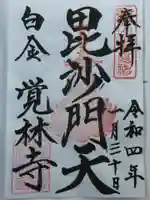 奉拝
令和四年
一月三十日
毘沙門天
白金
覚林寺